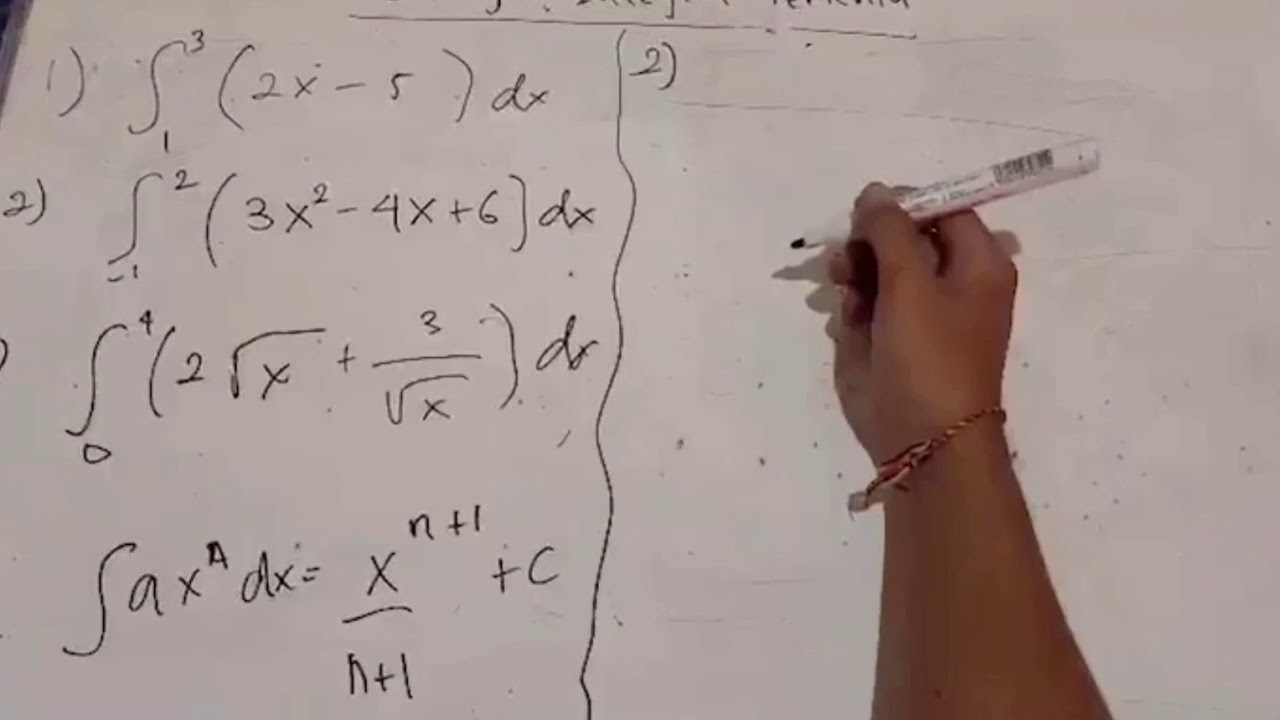 1) ∫₁³ (2x - 5) dx
2) ∫₋₁² (3x² - 4x + 6) dx
) ∫₀⁴ (2√x + 3/√x) dx
∫ axⁿ dx = xⁿ⁺¹/n+1 + C
2)